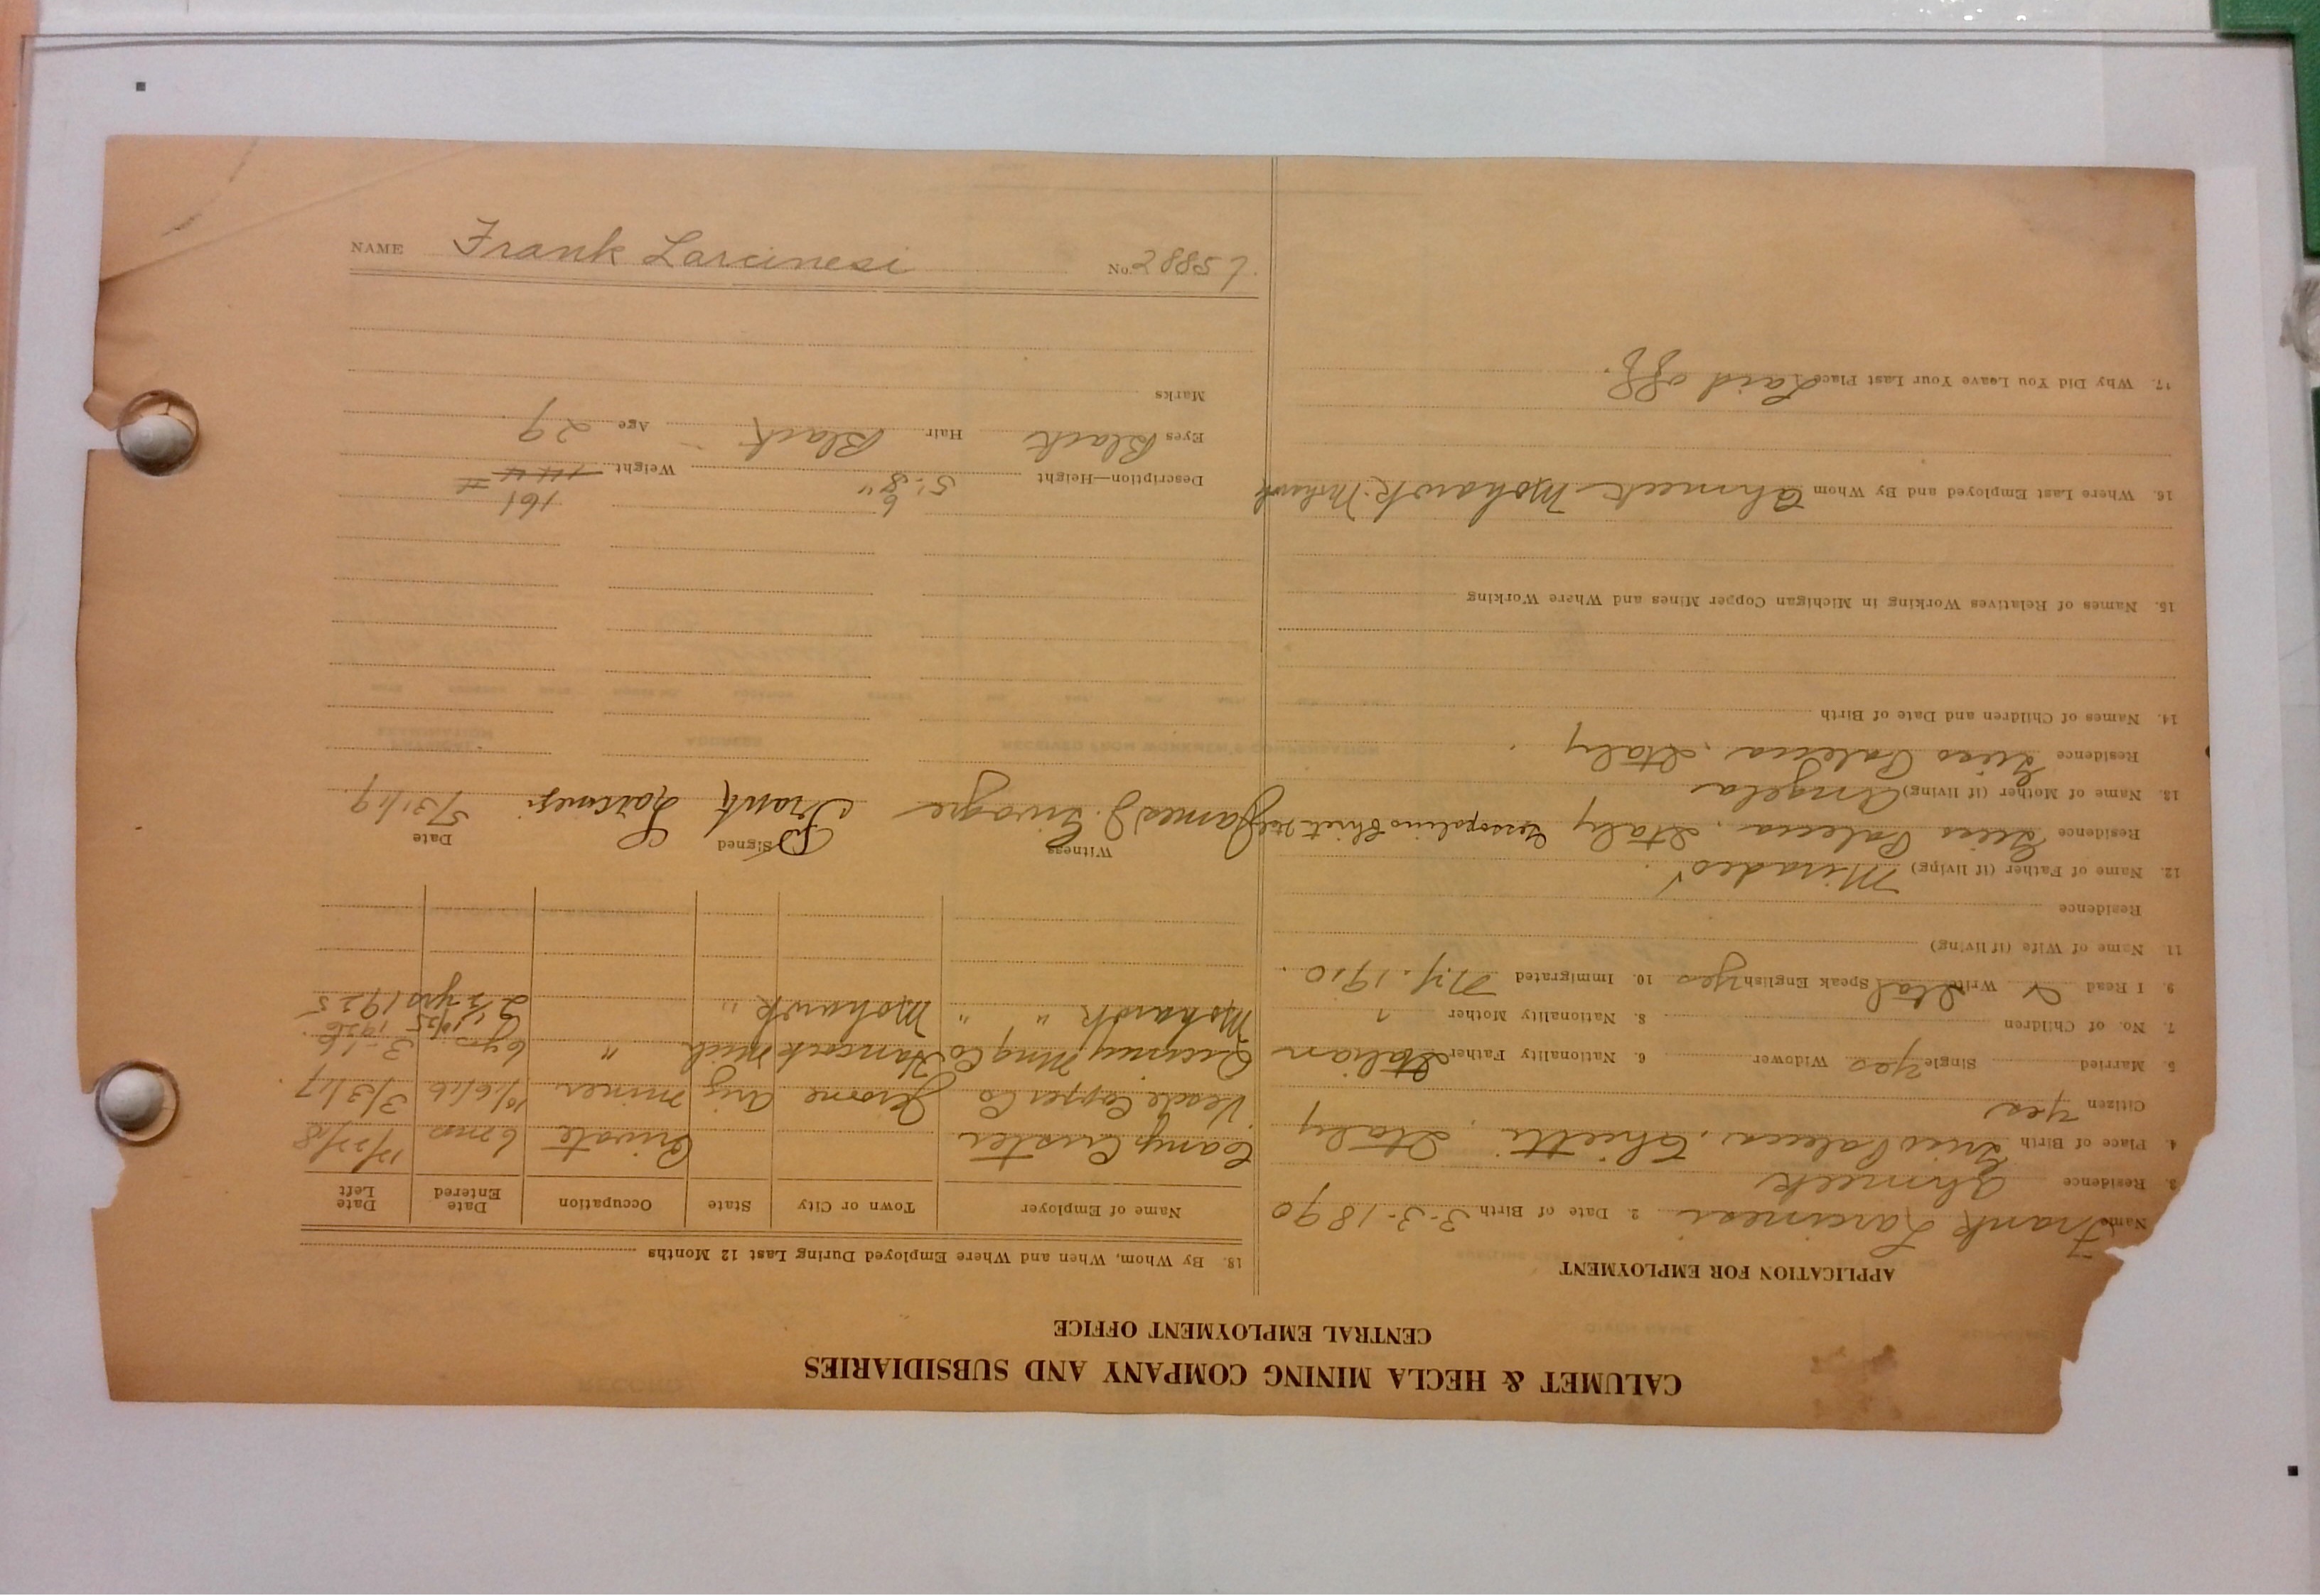 CALUMET & HECLA MINING COMPANY AND SUBSIDIARIES
CENTRAL EMPLOYMENT OFFICE
APPLICATION FOR EMPLOYMENT
Name Frank Larcinesi 2. Date of Birth 3-3-1890
3. Residence Ahmeek
4. Place of Birth Chietti, Italy
Citizen Yes
5. Married Single Yes Widower 6. Nationality Father Italian
7. No. of Children 8. Nationality Mother "
9. I Read Write Ital Speak English yes 10. Immigrated N.Y. 1910.
11. Name of Wife (if living)
Residence
12. Name of Father (if living)
Residence Italy
13. Name of Mother (if living) Angela
Residence Italy
14. Names of Children and Date of Birth
15. Names of Relatives Working in Michigan Copper Mines and Where Working
16. Where Last Employed and By Whom Ahmeek Mohawk. Mohawk
17. Why Did You Leave Your Last Place Laid off.
18. By Whom, When and Where Employed During Last 12 Months
Name of Employer Town or City State Occupation Date Entered Date Left
Camp Custer Private 6 mos
Verde Copper Co Jerome Ariz miner 10/6/16 3/3/17
Quincy Mng Co Hancock Mich " 6 yrs 3-16
1926
Mohawk " " Mohawk " 2 1/2 yrs 1925
Witness Signed Date
James J. Frank Larcinesi 5/31/19.
6 161
Description—Height 5'-8" Weight 144 #
Eyes Black Hair Black Age 29
Marks
NAME Frank Larcinesi No. 28857.